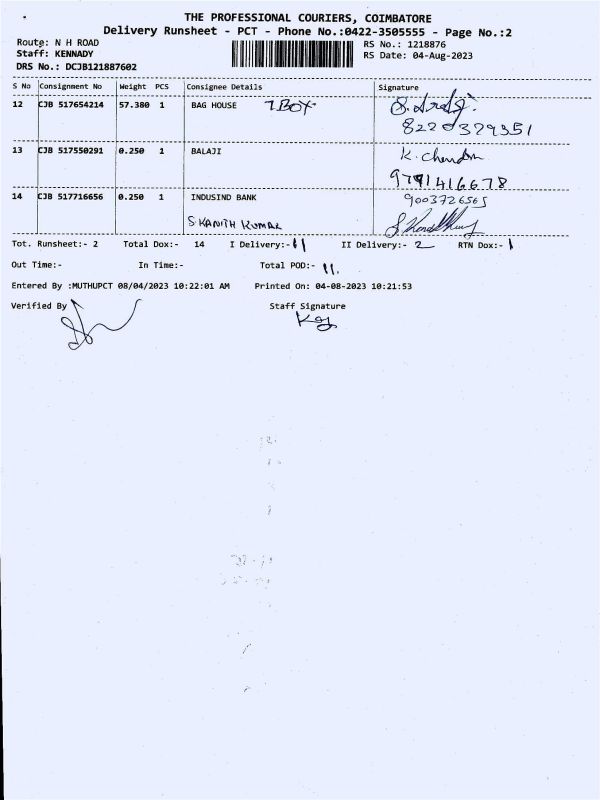 THE PROFESSIONAL COURIERS, COIMBATORE
Delivery Runsheet - PCT - Phone No.:0422-3505555 - Page No.:2
Route: N H ROAD RS No.: 1218876
Staff: KENNADY RS Date: 04-Aug-2023
DRS No.: DCJB121887602
S No Consignment No Weight PCS Consignee Details Signature
12 CJB 517654214 57.380 1 BAG HOUSE 7 BOX
8220379351
13 CJB 517550291 0.250 1 BALAJI K. Chandn
9791416678
14 CJB 517716656 0.250 1 INDUSIND BANK 9003726565
S KANITH KUMAR
Tot. Runsheet:- 2 Total Dox:- 14 I Delivery:- 11 II Delivery:- 2 RTN Dox:- 1
Out Time:- In Time:- Total POD:- 11.
Entered By :MUTHUPCT 08/04/2023 10:22:01 AM Printed On: 04-08-2023 10:21:53
Verified By Staff Signature